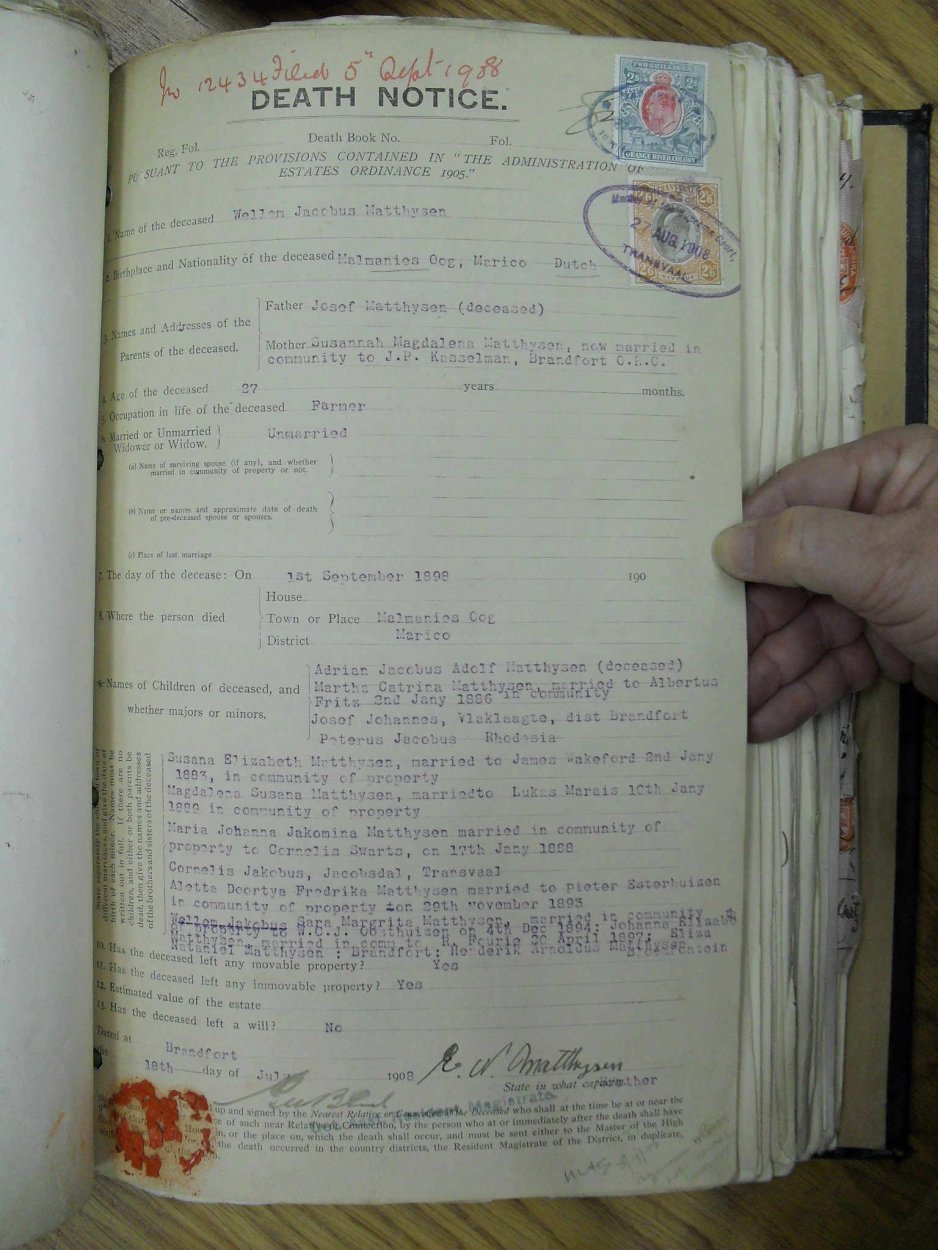 No 12434 Filed 5th Sept 1908
DEATH NOTICE.
Reg. Fol. Death Book No. Fol.
PU SUANT TO THE PROVISIONS CONTAINED IN "THE ADMINISTRATION OF
ESTATES ORDINANCE 1905."
TWO SHILLINGS
2s 2s
ORANGE RIVER COLONY
TRANSVAAL
2/6 2/6
Court,
27 AUG 1908
TRANSVAAL
2/6 2/6
1. Name of the deceased Wellem Jacobus Matthysen
2. Birthplace and Nationality of the deceased Malmanies Oog, Marico Dutch
3. Names and Addresses of the
Parents of the deceased.
Father Josef Matthysen (deceased)
Mother Susannah Magdalena Matthysen, now married in
community to J.P. Kasselman, Brandfort O.R.C.
4. Age of the deceased 27 years months.
5. Occupation in life of the deceased Farmer
6. Married or Unmarried
Widower or Widow.
Unmarried
(a) Name of surviving spouse (if any), and whether
married in community of property or not.
(b) Name or names and approximate date of death
of pre-deceased spouse or spouses.
(c) Place of last marriage
7. The day of the decease: On 1st September 1898 190
8. Where the person died
House
Town or Place Malmanies Oog
District Marico
9. Names of Children of deceased, and
whether majors or minors.
Adrian Jacobus Adolf Matthysen (deceased)
Martha Catrina Matthysen, married to Albertus
Fritz 2nd Jany 1886 in community
Josef Johannes, Vlaklaagte, dist Brandfort
Peterus Jacobus Rhodesia
State separately the children born of
different marriages, and give the date of
birth of each minor. Names must be
written out in full. If there are no
children, and either or both parents be
dead, then give the names and addresses
of the brothers and sisters of the deceased
Susana Elizabeth Matthysen, married to James Wakeford 2nd Jany
1883, in community of property
Magdalena Susana Matthysen, marriedto Lukas Marais 10th Jany
1889 in community of property
Maria Johanna Jakomina Matthysen married in community of
property to Cornelis Swarts, on 17th Jany 1888
Cornelis Jakobus, Jacobsdal, Transvaal
Aletta Doortya Fredrika Matthysen married to Pieter Esterhuizen
in community of property on 29th November 1893
Wellem Jakobus Sara Margrita Matthysen, married in community
of property to W.C.J. Oosthuizen on 4th Dec 1894; Johanna Elisabt
Matthysen, married in comm to R. Fourie 20 April 1897; Eliza
Nataniel Matthysen : Brandfort; Hederik Arnoldus Matthysen
10. Has the deceased left any movable property? Yes
11. Has the deceased left any immovable property? Yes
12. Estimated value of the estate
13. Has the deceased left a will? No
Dated at Brandfort
the 18th day of July 1908 E. N. Matthysen
State in what capacity Brother
Resident Magistrate
up and signed by the Nearest Relative or Connection of the Deceased who shall at the time be at or near the
ce of such near Relative or Connection, by the person who at or immediately after the death shall have
in, or the place on, which the death shall occur, and must be sent either to the Master of the High
the death occurred in the country districts, the Resident Magistrate of the District, in duplicate,